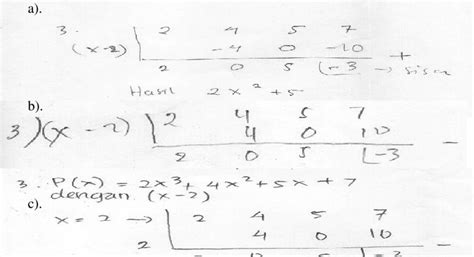 a).
3. 2 4 5 7
(x-2) -4 0 -10 +
2 0 5 -3 → sisa
Hasil 2x² + 5
b).
3) (x - 2) 2 4 5 7
4 0 10
2 0 5 -3 -
3. P(x) = 2x³ + 4x² + 5x + 7
dengan (x-2)
c).
x = 2 → 2 4 5 7
4 0 10
2 -